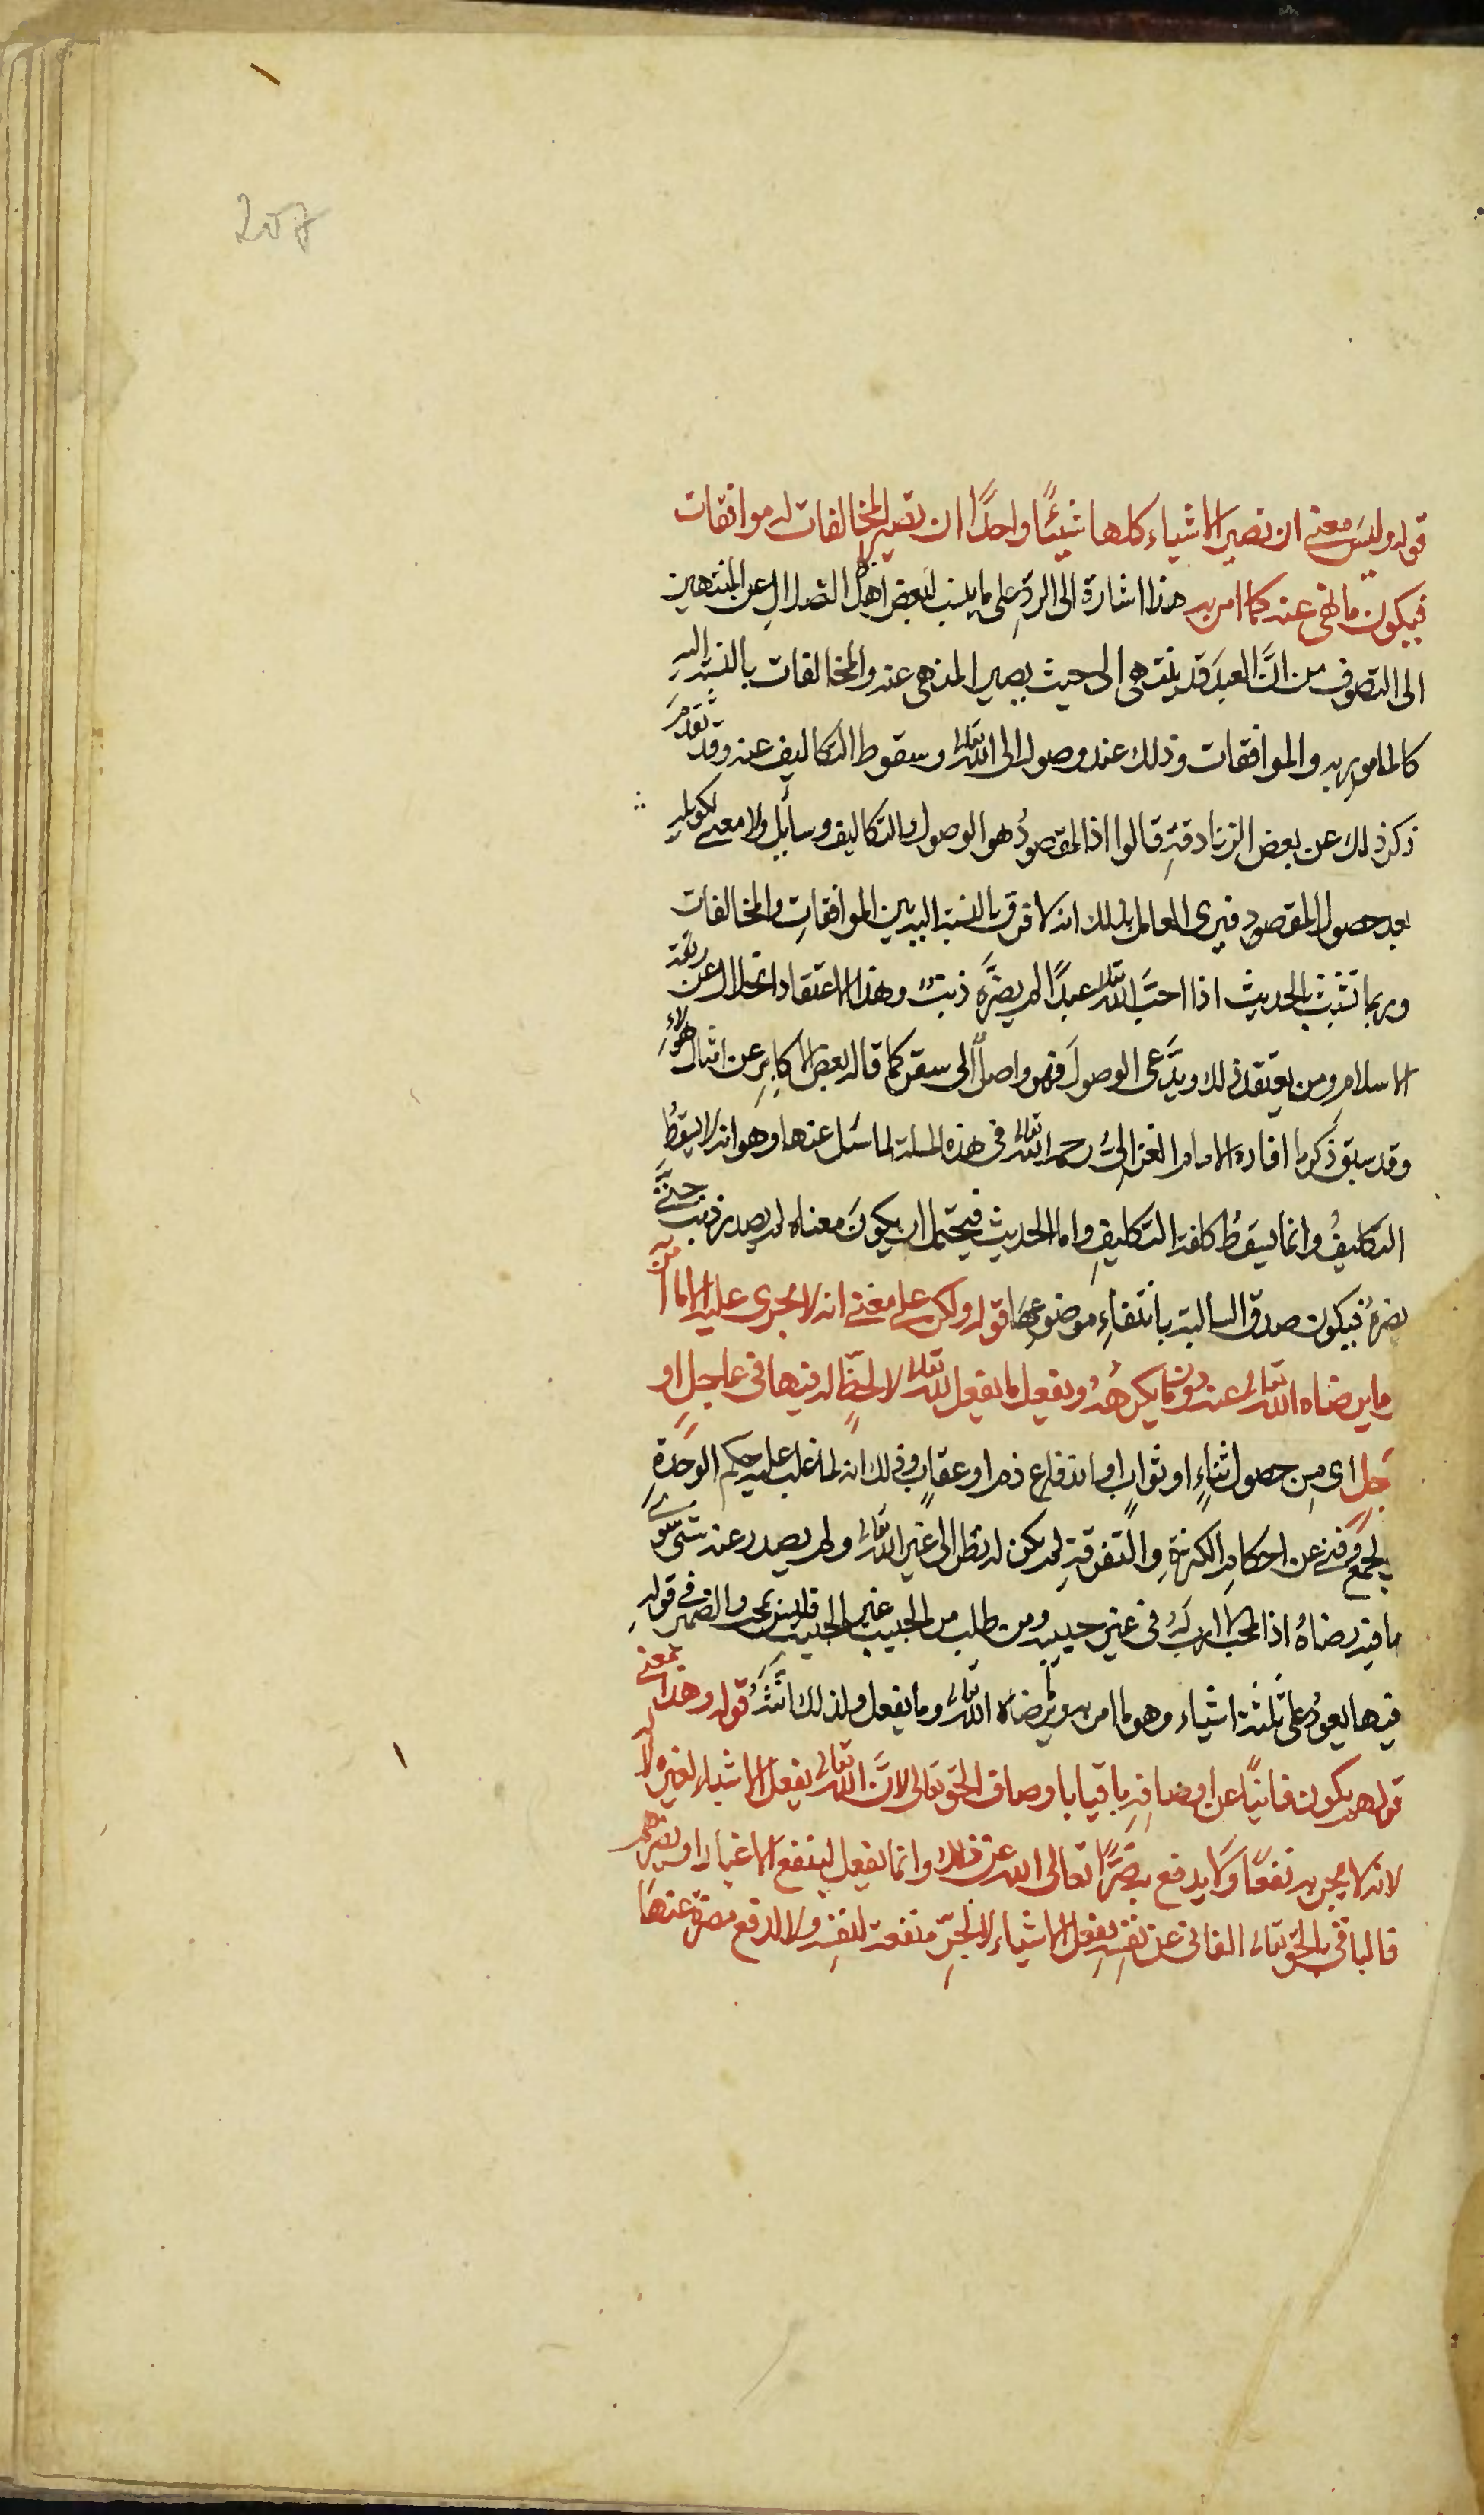 207
قوله وليس معنى ان تصير الاشياء كلها شيئًا واحدًا ان تصير المخالفات له موافقات
فيكون ما نهى عنه كما امر به هذا اشارة الى الردّ على ما ينسب لبعض اهل الضلال عن المنتهين
الى التصوف من انَّ العبدَ قد ينتهى الى حيث يصير المنهى عنه والمخالفات بالنسبة اليه
كالمامور به والموافقات وذلك عند وصوله الى الله تعالى وسقوط التكاليف عنه وقد تقدمَ
ذكر ذلك عن بعض الزنادقةِ قالوا اذ المقصودُ هو الوصول والتكاليف وسايل ولا معنى لكونه
بعد حصول المقصود فيرى العامل بذلك انه لا فرق بالنسبة اليه بين الموافقاتِ والمخالفات
وربما تشبث بالحديث اذا احبَّ الله تعالى عبدًا لم يضرَّه ذنبٌ وهذا الاعتقاد انحلال عن ربقة
الاسلامِ ومن يعتقد ذلك ويدَّعى الوصولَ فهو واصلٌ الى سقر كما قاله بعض الاكابرِ عن امثال هؤلاءِ
وقد سبق ذكر ما افاده الامام الغزالىُّ رحمه الله تعالى فى هذه المسلة لما سُئل عنها وهو انه لا يسقطُ
التكاليفُ وانما يسقطُ كلفة التكليفِ واما الحديث فيحتمل ان يكونَ معناه لم يصدر ذنب حتى
يضرهُ فيكون صدق السالبة بانتفاءِ موضوعها قوله ولكن على معنى انه لا يجرى عليه الا ما امر به
وما يرضاه الله تعالى عنه دون ما يكرهُهُ ويفعل ما يفعل لله تعالى لا لحظٍّ له فيها فى عاجل او
آجل اى من حصول ثناءٍ او ثوابٍ او اندفاع ذم او عقابٍ وذلك انه لما غلب عليه حكم الوحدةِ
بالجمع وفنى عن احكام الكثرةِ والتفرقةِ لم يكن له نظر الى غير الله تعالى ولم يصدر عنه شى سوى
ما فيه رضاهُ اذ المحب لا اربَ لهُ فى غير حبيبه ومن طلب من الحبيب غير الحبيب فليس بمحب والضمير فى قولهِ
فيها يعودُ على ثلثة اشياء وهو ما امر به وما يرضاه الله تعالى وما يفعل ولذلك انَّثَهُ قوله وهذا معنى
قولهم يكون فانيًا عن اوصافِهِ باقيا باوصاف الحق تعالى لانَّ الله تعالى يفعل الاشياء لغيره لا
لانه لا يجر به نفعًا ولا يدفع به ضرًّا تعالى الله عن ذلك وانما يفعل لينفع الاغيار او يضرهم
فالباقى بالحق تعالى الفانى عن نفسِهِ يفعل الاشياء لا لجرِّ منفعة لنفسِه ولا لدفع مضرة عنها